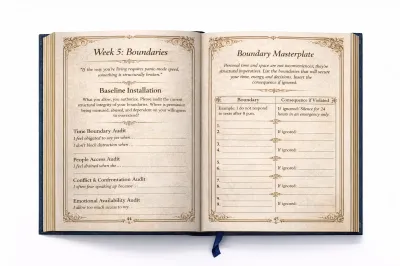 Week 5: Boundaries
"If the way you're living requires panic-mode speed,
something is structurally broken."
Baseline Installation
What you allow, you authorize. Please audit the current
structural integrity of your boundaries. Where is permission
being assumed, abused, and dependent on your willingness
to overextend?
Time Boundary Audit
I feel obligated to say yes when
I don't block distraction when
People Access Audit
I feel drained when
Conflict & Confrontation Audit
I often fear speaking up because
Emotional Availability Audit
I allow too much access to my
44
Boundary Masterplate
Personal time and space are not inconveniences, they're
structural imperatives. List the boundaries that will secure
your time, energy, and decisions. Insert the
consequence if ignored.
Boundary
Consequence if Violated
Example: I do not respond
to texts after 8 p.m.
If ignored: Silence for 24
hours in an emergency only.
1.
2.
If ignored:
3.
4.
If ignored:
5.
6.
If ignored:
7.
If ignored:
8.
9.
If ignored:
45